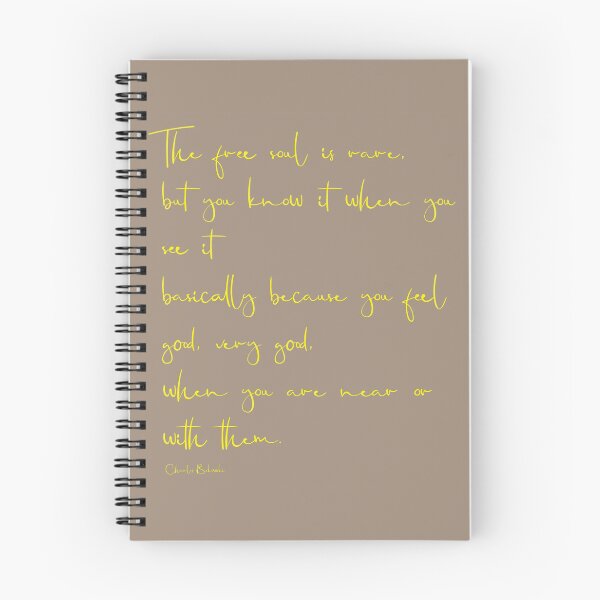 The free soul is rare,
but you know it when you
see it
basically because you feel
good, very good,
when you are near or
with them.
Charles Bukowski